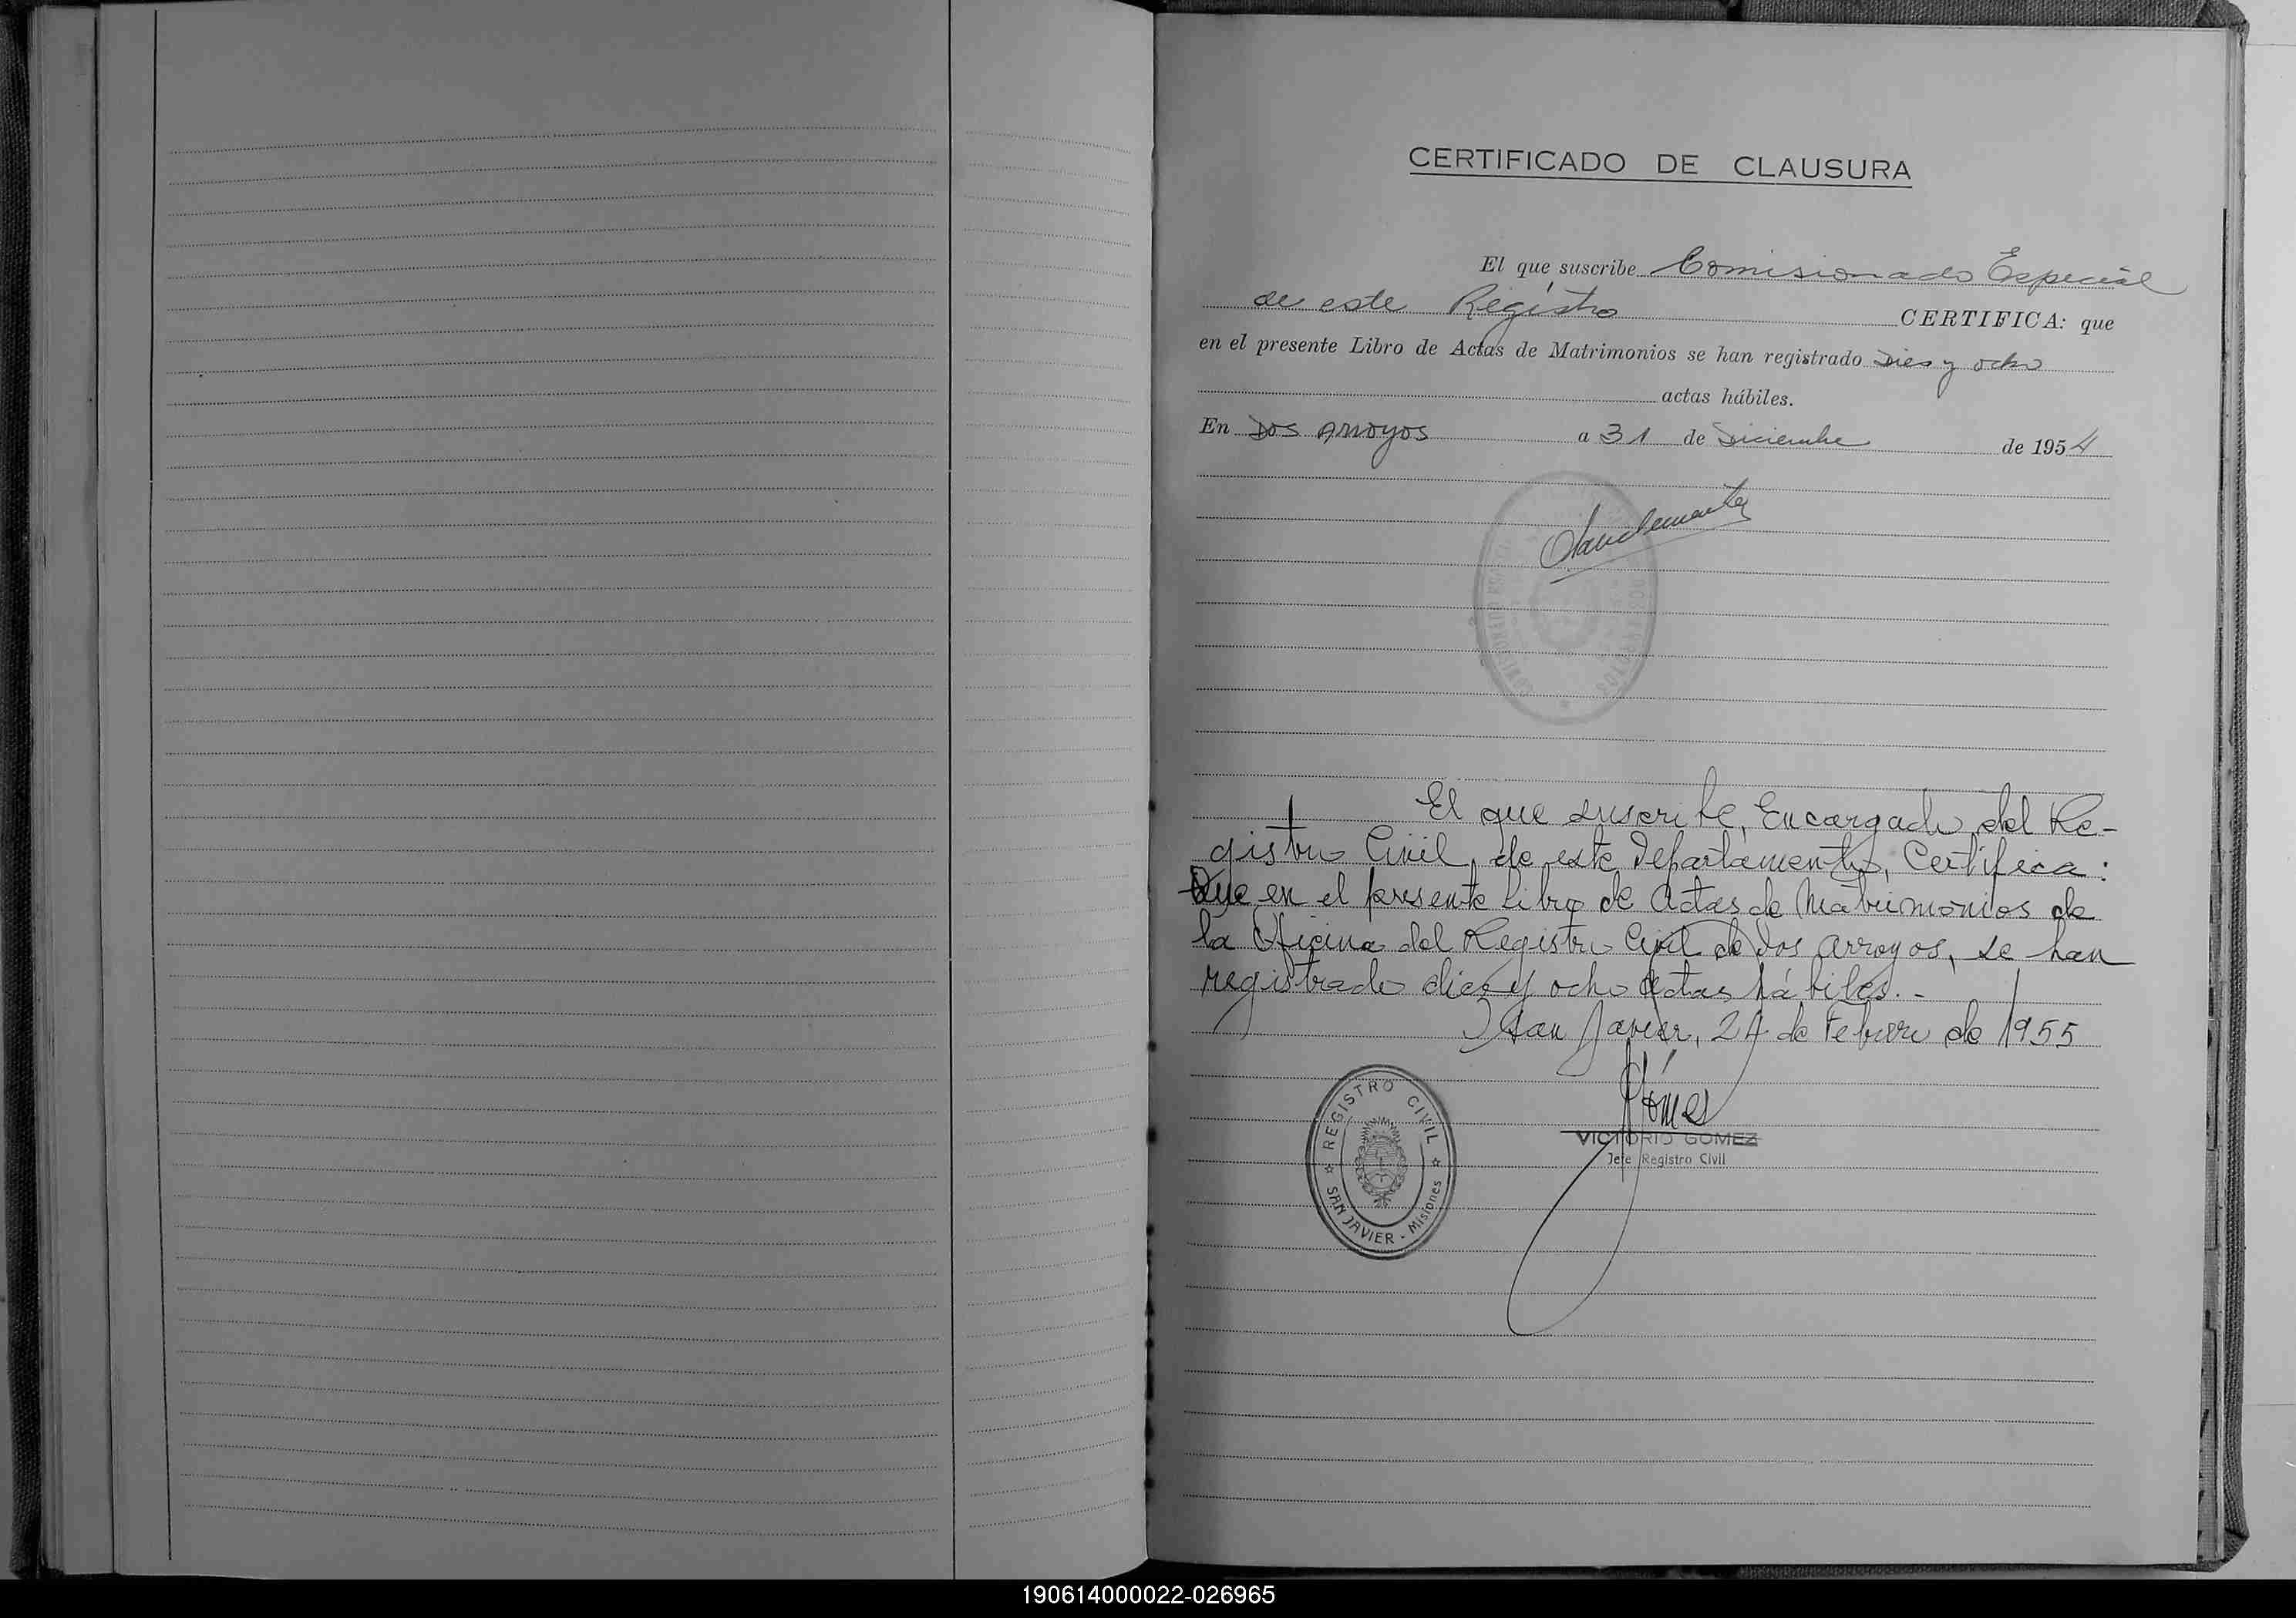 CERTIFICADO DE CLAUSURA
El que suscribe Comisionado Especial
de este Registro CERTIFICA: que
en el presente Libro de Actas de Matrimonios se han registrado Dies y ocho
actas hábiles.
En Dos Arroyos a 31 de Diciembre de 1954
El que suscribe, Encargado del Re-
gistro Civil, de este Departamento, Certifica:
Que en el presente Libro de Actas de Matrimonios de
la Oficina del Registro Civil de Dos Arroyos, se han
registrado diez y ocho actas hábiles.-
San Javier, 24 de Febrero de 1955
Gómez
VICTORIO GOMEZ
Jefe Registro Civil
REGISTRO CIVIL
SAN JAVIER - Misiones
190614000022-026965